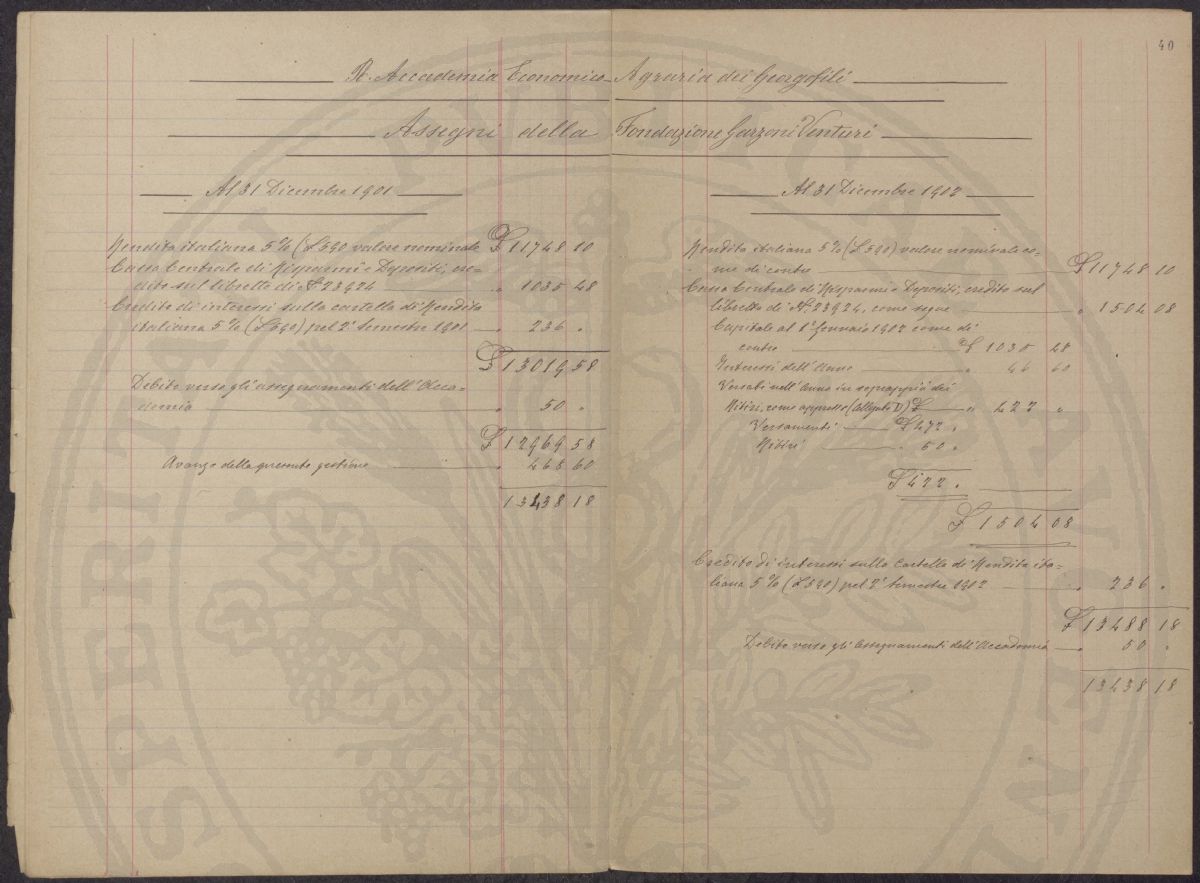 40
R. Accademia Economico-Agraria dei Georgofili
Assegni della Fondazione Garzoni Venturi
Al 31 Dicembre 1901
Rendita italiana 5% (£ 590 valore nominale £ 11748 10
Cassa Centrale di Risparmi e Depositi, cre-
dito sul libretto di N° 23924 " 1035 48
Credito di interessi sulla cartella di Rendita
italiana 5% (£ 590) pel 2° semestre 1901 " 236 "
£ 13019 58
Debito verso gli assegnamenti dell'Acca-
demia " 50 "
£ 12969 58
Avanzo della presente gestione " 468 60
13438 18
Al 31 Dicembre 1902
Rendita italiana 5% (£ 590) valore nominale co-
me di contro £ 11748 10
Cassa Centrale di Risparmi e Depositi, credito sul
libretto di N° 23924, come segue " 1504 08
Capitale al 1° Gennaio 1902 come di
contro £ 1035 48
Interessi dell'Anno " 46 60
Versati nell'Anno in soprappiù dei
Ritiri, come appresso (Allegato D) £ " 422 "
Versamenti £ 472 "
Ritiri " 50 "
£ 422 "
£ 1504 08
Credito di interessi sulla Cartella di Rendita ita-
liana 5% (£ 590) pel 2° semestre 1902 " 236 "
£ 13488 18
Debito verso gli Assegnamenti dell'Accademia " 50 "
13438 18
PVBLICA
PERITA